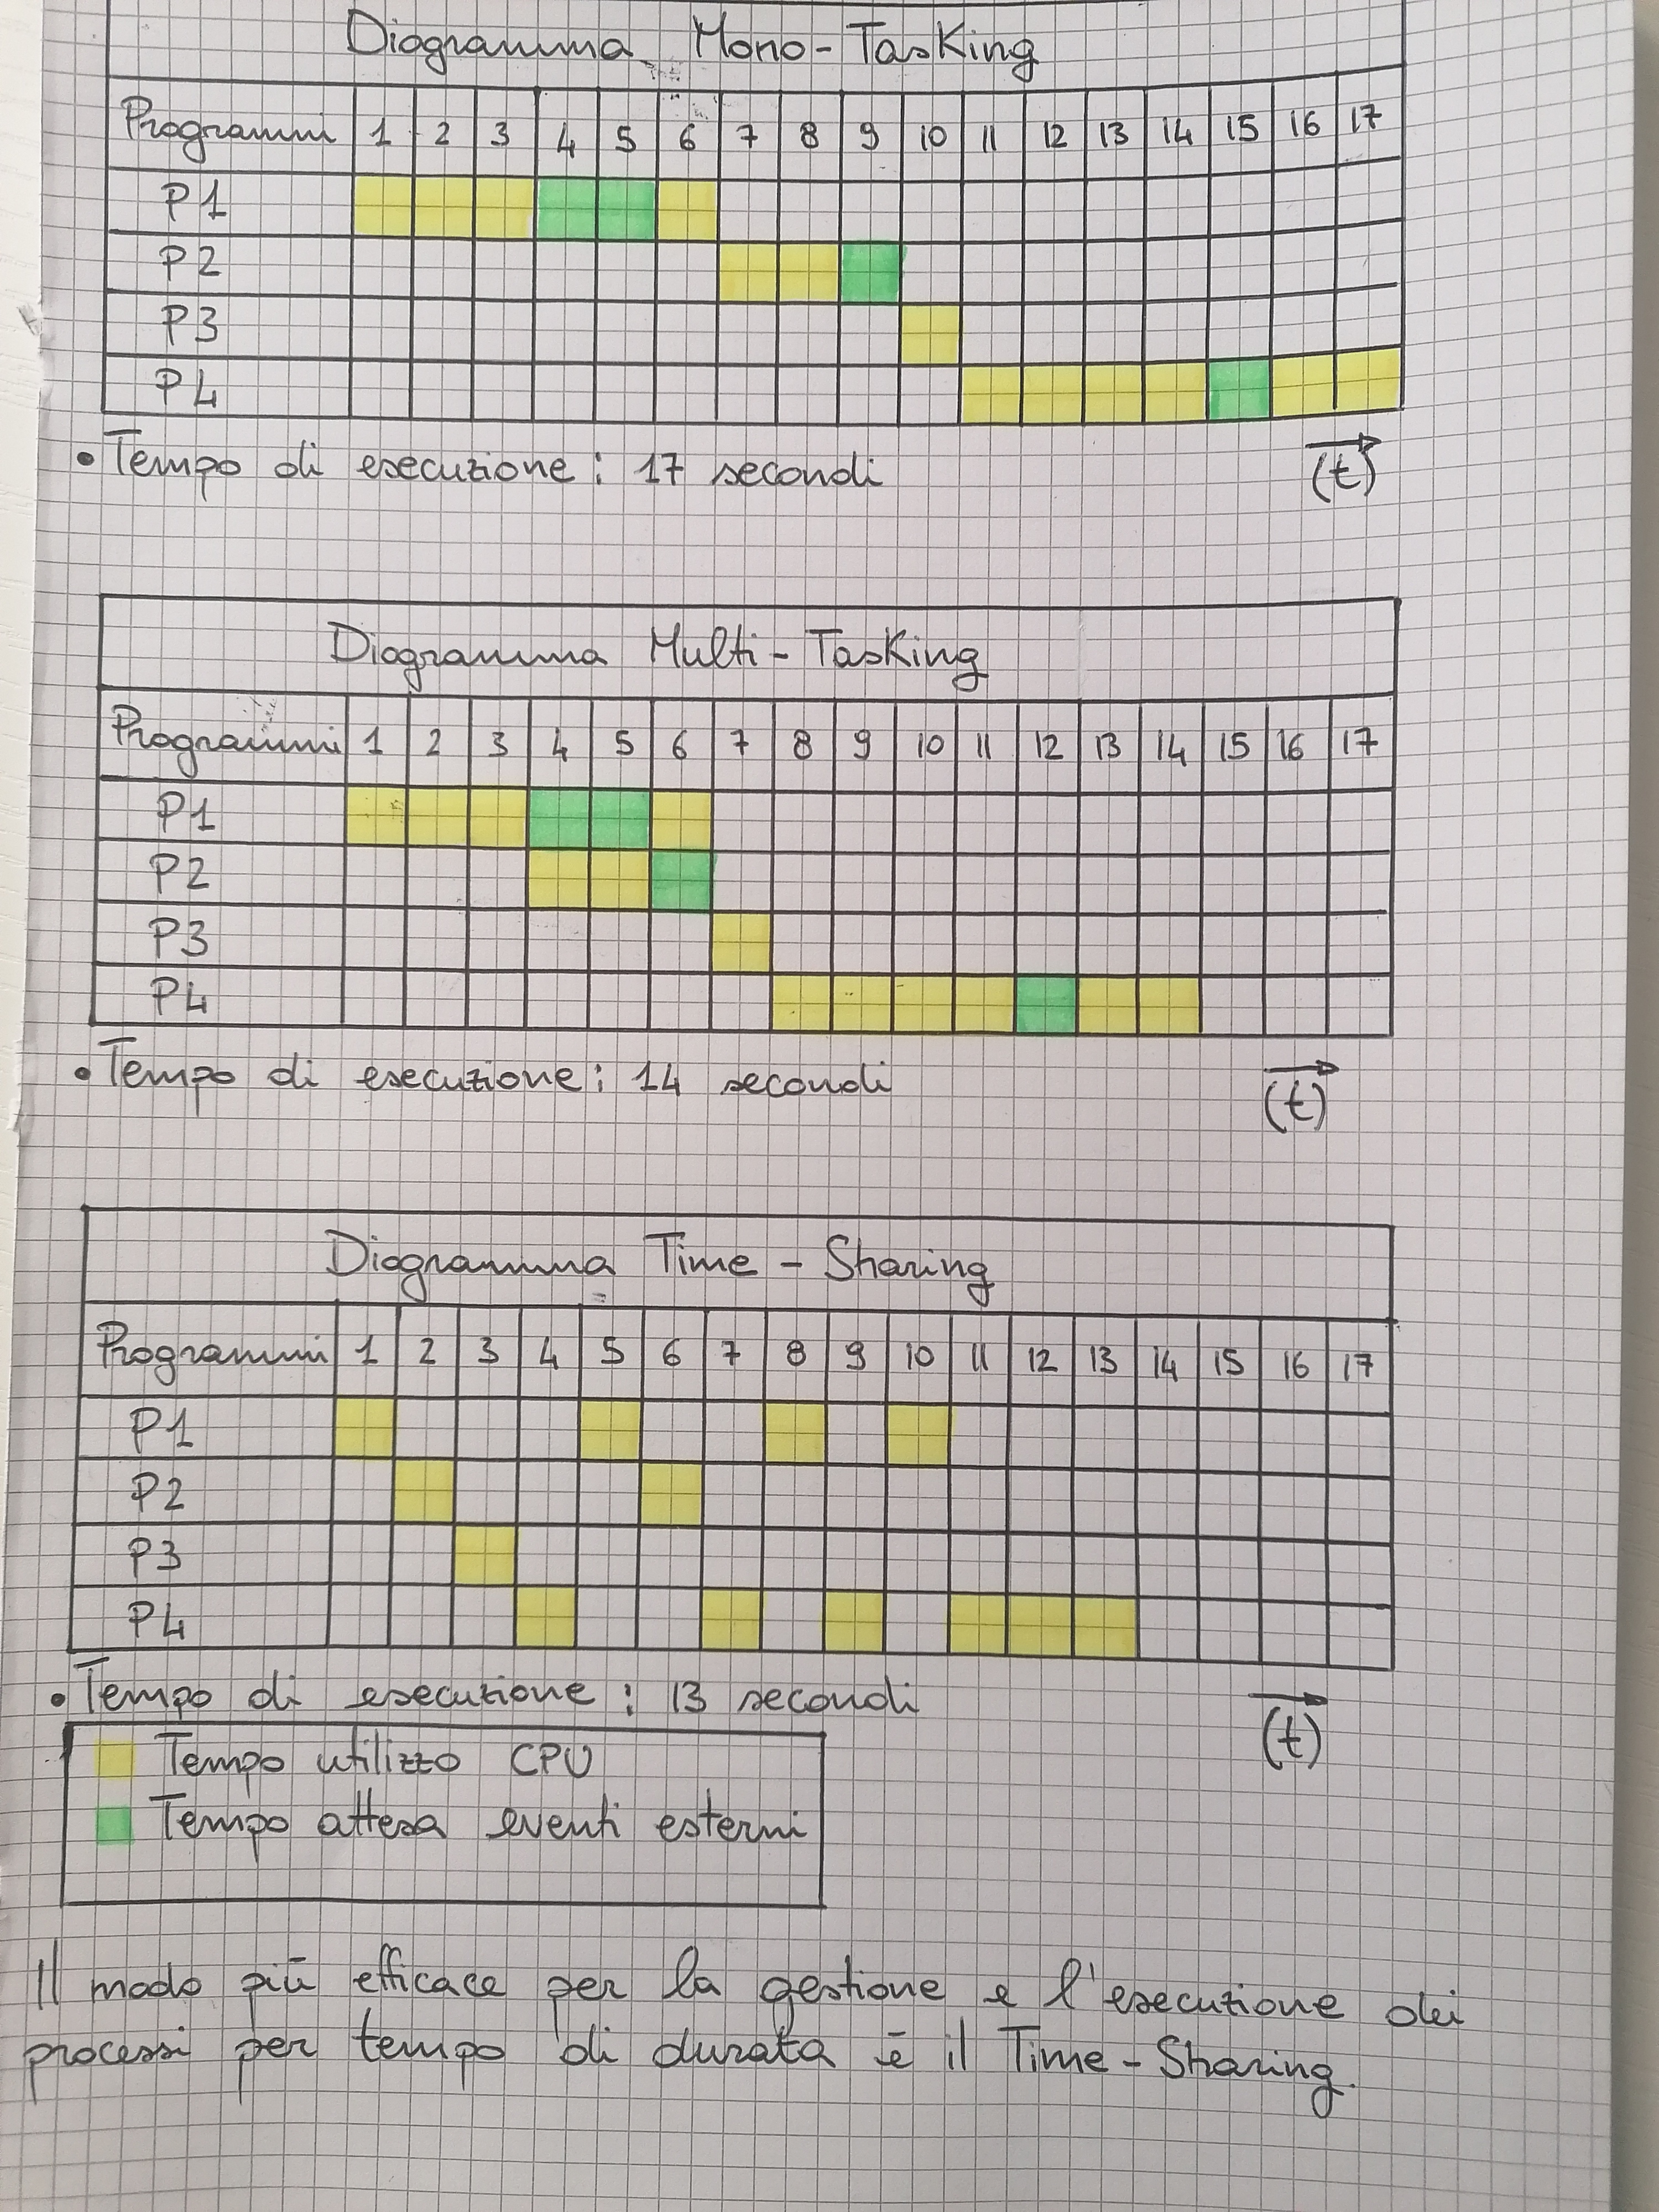 Diagramma Mono-Tasking
Programmi 1 2 3 4 5 6 7 8 9 10 11 12 13 14 15 16 17
P1
P2
P3
P4
• Tempo di esecuzione: 17 secondi (t)
Diagramma Multi-Tasking
Programmi 1 2 3 4 5 6 7 8 9 10 11 12 13 14 15 16 17
P1
P2
P3
P4
• Tempo di esecuzione: 14 secondi (t)
Diagramma Time-Sharing
Programmi 1 2 3 4 5 6 7 8 9 10 11 12 13 14 15 16 17
P1
P2
P3
P4
• Tempo di esecuzione: 13 secondi (t)
Tempo utilizzo CPU
Tempo attesa eventi esterni
Il modo più efficace per la gestione e l'esecuzione dei
processi per tempo di durata è il Time-Sharing.